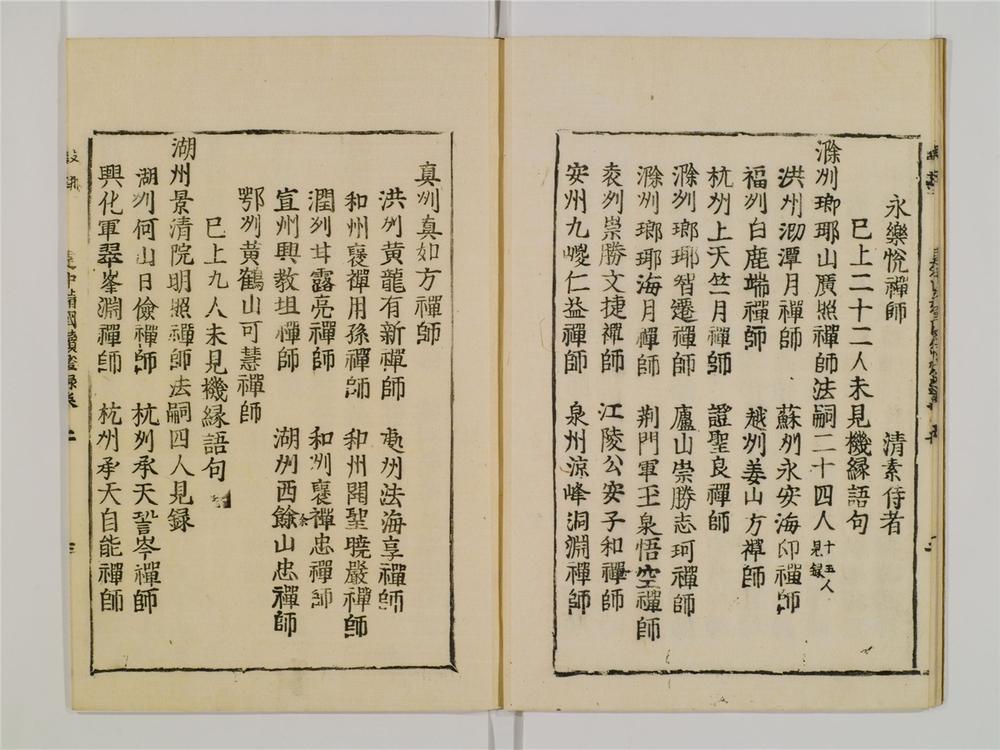 永樂悅禪師 清素侍者
巳上二十二人未見機緣語句
滁州瑯琊山廣照禪師法嗣二十四人十五人見録
洪州泐潭月禪師 蘇州永安海印禪師
福州白鹿端禪師 越州姜山方禪師
杭州上天竺月禪師 證聖良禪師
滁州瑯琊智遷禪師 廬山崇勝志珂禪師
滁州瑯琊海月禪師 荆門軍玉泉悟空禪師
袁州崇勝文捷禪師 江陵公安子和禪師
安州九嵕仁益禪師 泉州涼峰洞淵禪師
真州真如方禪師
洪州黄龍有新禪師 惠州法海享禪師
和州褒禪用孫禪師 和州開聖曉嚴禪師
潤州甘露亮禪師 和州褒禪忠禪師
宣州興教坦禪師 湖州西餘山忠禪師
鄂州黄鶴山可慧禪師
巳上九人未見機緣語句
湖州景清院明照禪師法嗣四人見録
湖州何山日儉禪師 杭州承天岑禪師
興化軍翠峯淵禪師 杭州承天自能禪師